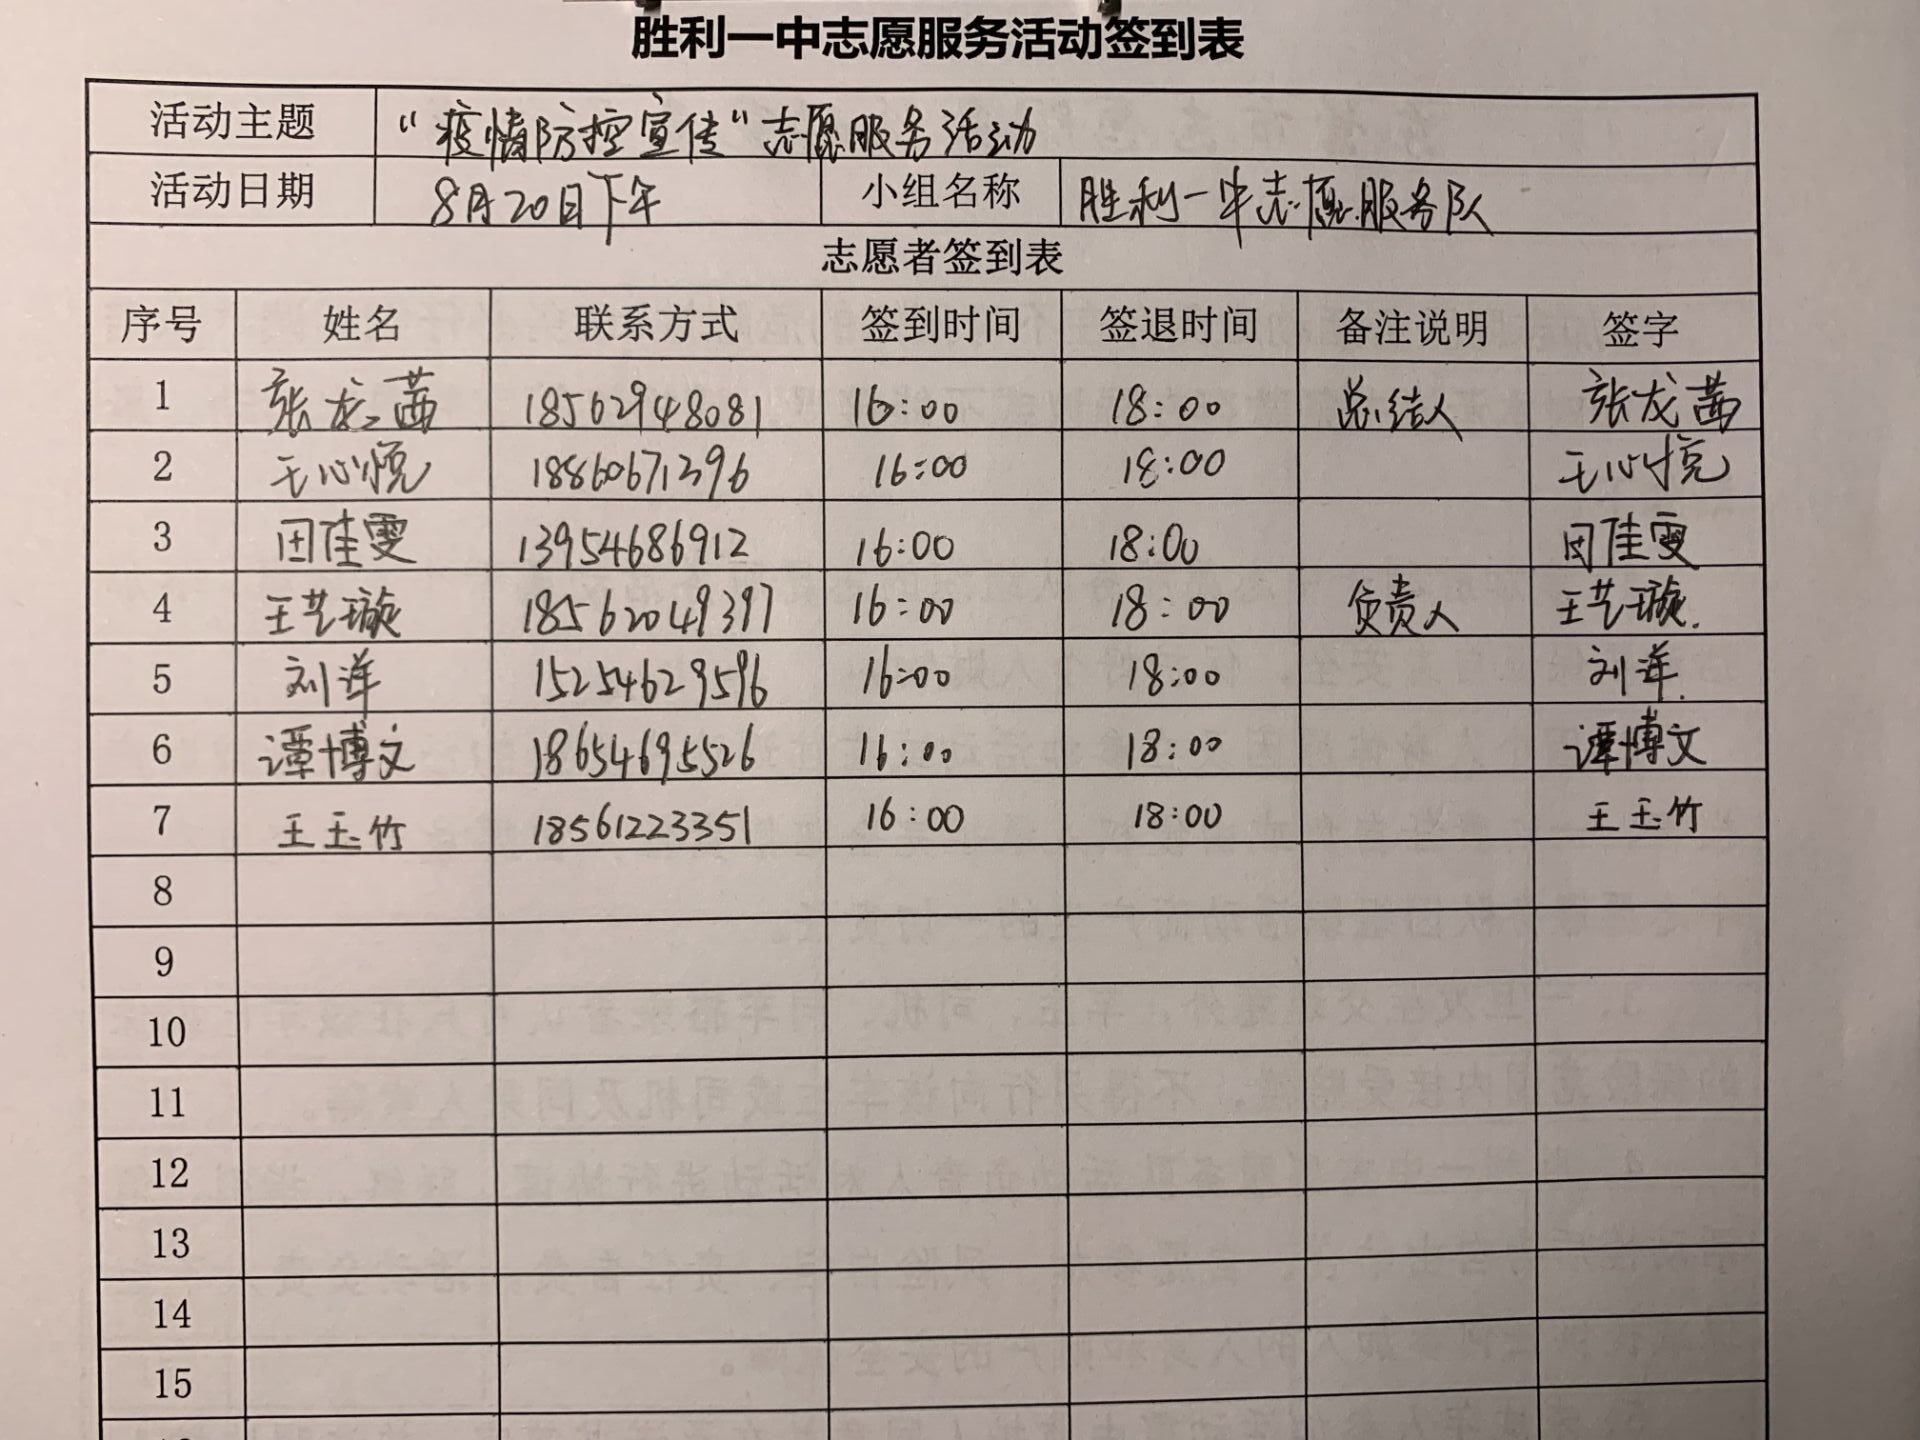 胜利一中志愿服务活动签到表
活动主题 “疫情防控宣传”志愿服务活动
活动日期 8月20日下午 小组名称 胜利一中志愿服务队
志愿者签到表
序号 姓名 联系方式 签到时间 签退时间 备注说明 签字
1 张龙茜 18562948081 16:00 18:00 总结人 张龙茜
2 王心悦 18860671396 16:00 18:00 王心悦
3 田佳雯 13954686912 16:00 18:00 田佳雯
4 王艺璇 18562049397 16:00 18:00 负责人 王艺璇.
5 刘洋 15254629596 16:00 18:00 刘洋.
6 谭博文 18654695526 16:00 18:00 谭博文
7 王玉竹 18561223351 16:00 18:00 王玉竹
8
9
10
11
12
13
14
15